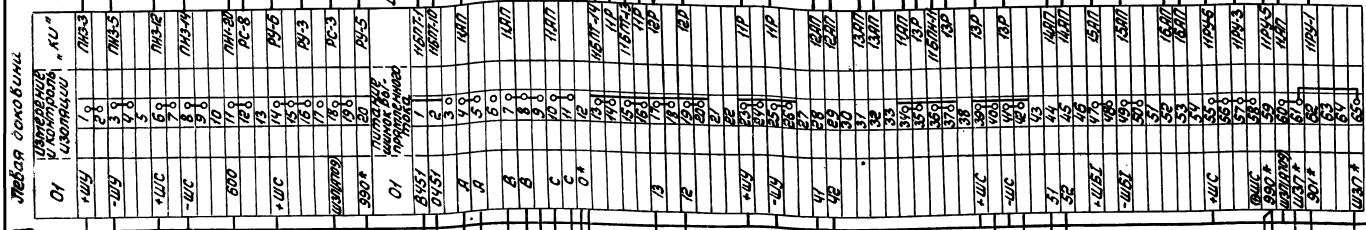 Левая боковина
01 Измерение и контроль изоляции "КИ"
+ШУ 1 ПИЗ-3
2
-ШУ 3 ПИЗ-5
4
5
+ШС 6 ПИЗ-12
7
-ШС 8 ПИЗ-14
9
10
600 11 ПИ1-20
12 РС-8
13
+ШС 14 РУ-6
15
16 РУ-3
17
18 РС-3
19
990* 20 РУ-5
01 Питание шинок выпрямленного тока
В451 1
0451 2
3
А 4 1АП
А 5
6
В 7 1АП
В 8
9
С 10 11АП
С 11
0* 12
13 11БПТ-14
14 11Р
15 11БПТ-13
16 11Р
13 17 12Р
18
12 19 12Р
20
21
22
+ШУ 23 11Р
24
-ШУ 25 11Р
26
27
41 28 12АП
42 29 12АП
30
31 13АП
32 13АП
33
34 11АП
35 13Р
36 11БПТ-11
37 13Р
38
+ШС 39 13Р
40
-ШС 41 13Р
42
43
51 44 14АП
52 45 14АП
46
+ШБТ 47 15АП
48
-ШБТ 49 15АП
50
51
52 16АП
53 16АП
54
+ШС 55 11РУ-6
56
57 11РУ-3
58
990* 59 11РУ-5
60 11АП
ШЗО* 61
901* 62 11РУ-1
63
64
ШЗО* 65